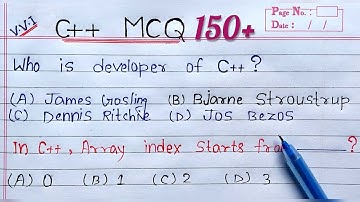 V.V.I
C++ MCQ 150+
Page No.:
Date : / /
Who is developer of C++?
(A) James Gosling (B) Bjarne Stroustrup
(C) Dennis Ritchie (D) Jos Bezos
In C++, Array index starts fro ?
(A) 0 (B) 1 (C) 2 (D) 3